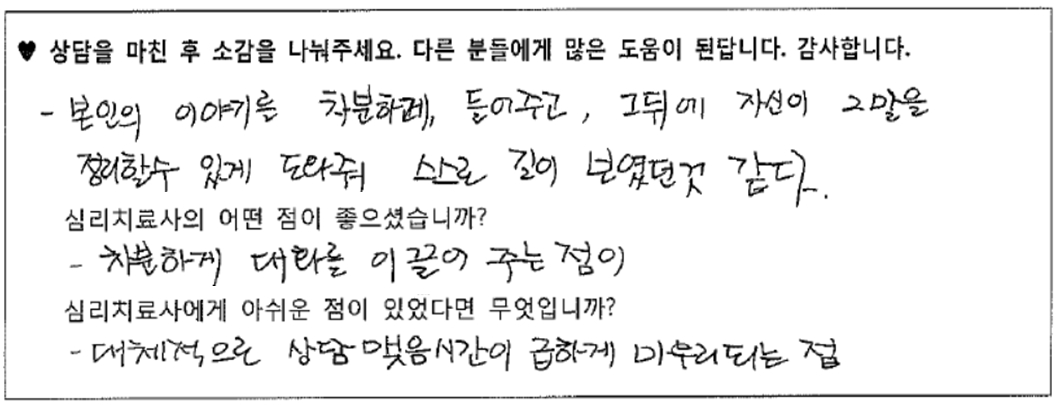 ♥ 상담을 마친 후 소감을 나눠주세요. 다른 분들에게 많은 도움이 된답니다. 감사합니다.
- 본인의 이야기를 차분하게, 들어주고, 그뒤에 자신이 그말을
정리할수 있게 도와줘 스스로 길이 보였던것 같다.
심리치료사의 어떤 점이 좋으셨습니까?
- 차분하게 대화를 이끌어 주는 점이
심리치료사에게 아쉬운 점이 있었다면 무엇입니까?
- 대체적으로 상담 맺음시간이 급하게 마무리되는 점